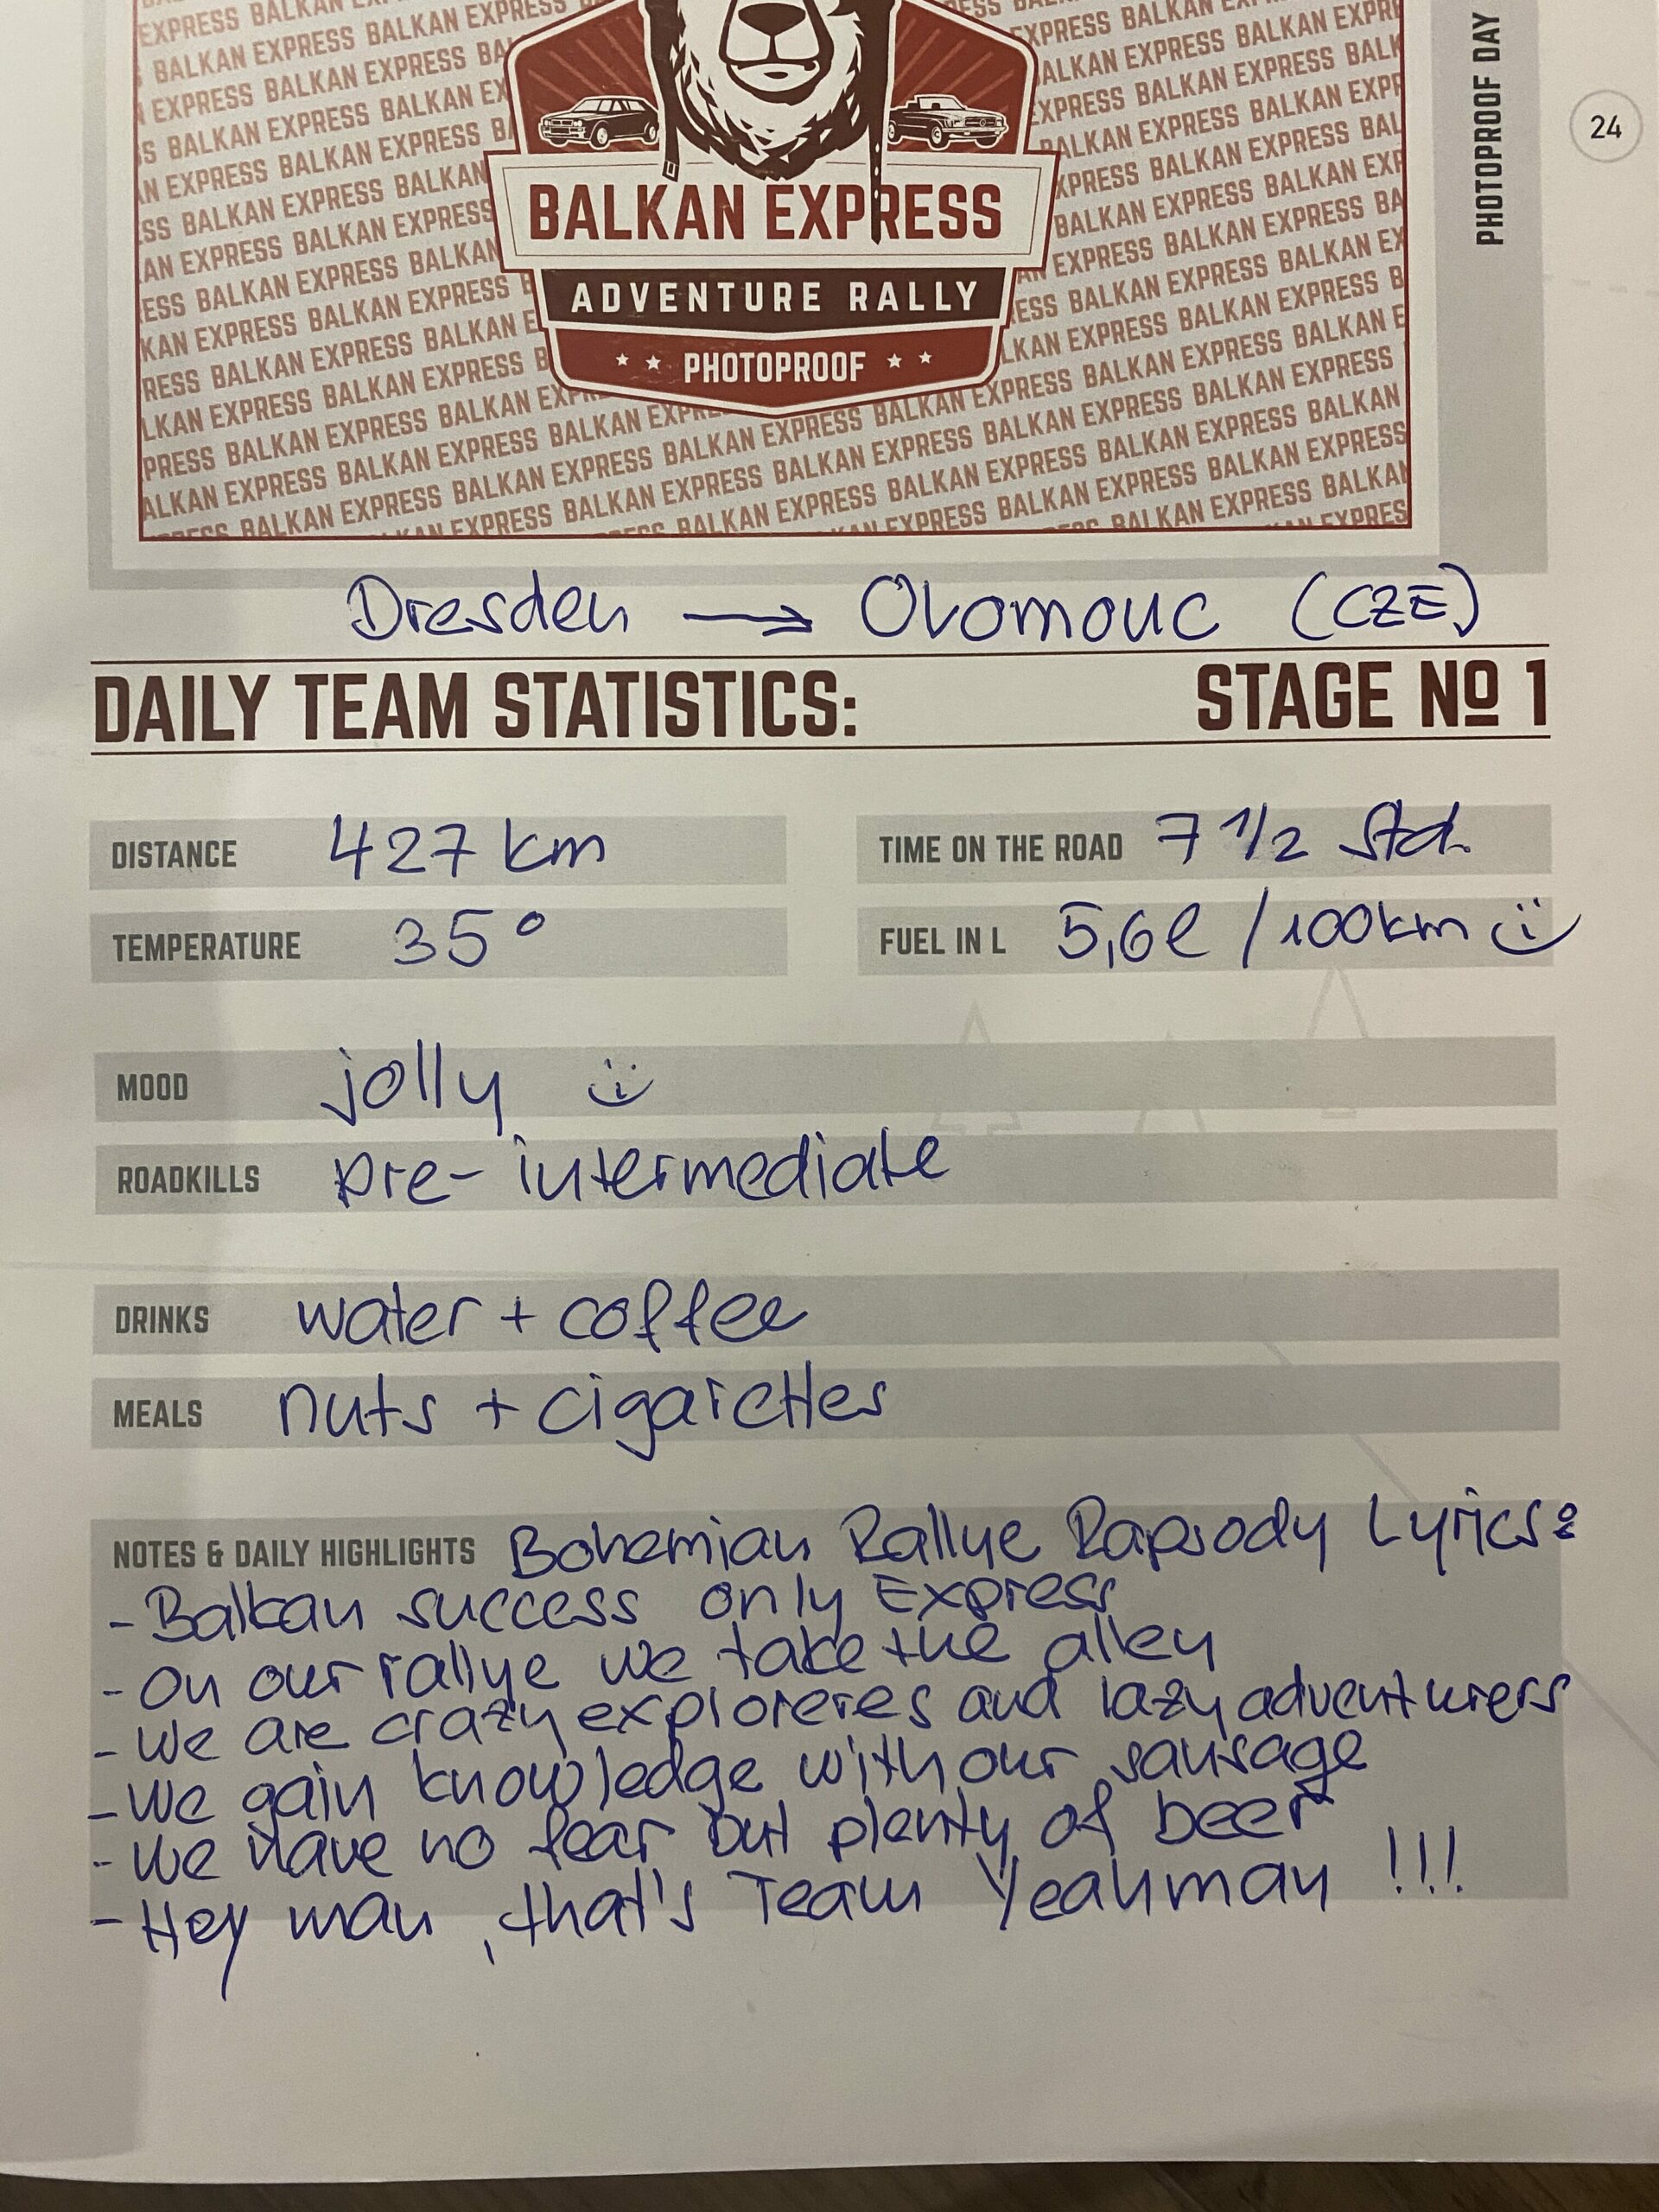 BALKAN EXPRESS
ADVENTURE RALLY
PHOTOPROOF
PHOTOPROOF DAY
24
Dresden → Olomouc (CZE)
DAILY TEAM STATISTICS: STAGE Nº 1
DISTANCE 427 km TIME ON THE ROAD 7 1/2 Std.
TEMPERATURE 35° FUEL IN L 5,6l /100km
MOOD jolly
ROADKILLS pre-intermediate
DRINKS water + coffee
MEALS nuts + cigarettes
NOTES & DAILY HIGHLIGHTS Bohemian Rallye Rapsody Lyrics:
- Balkan success only Express
- On our rallye we take the alley
- We are crazy exploreres and lazy adventurers
- We gain knowledge with our sausage
- We have no fear but plenty of beer
- Hey man, that's Team Yeahman !!!